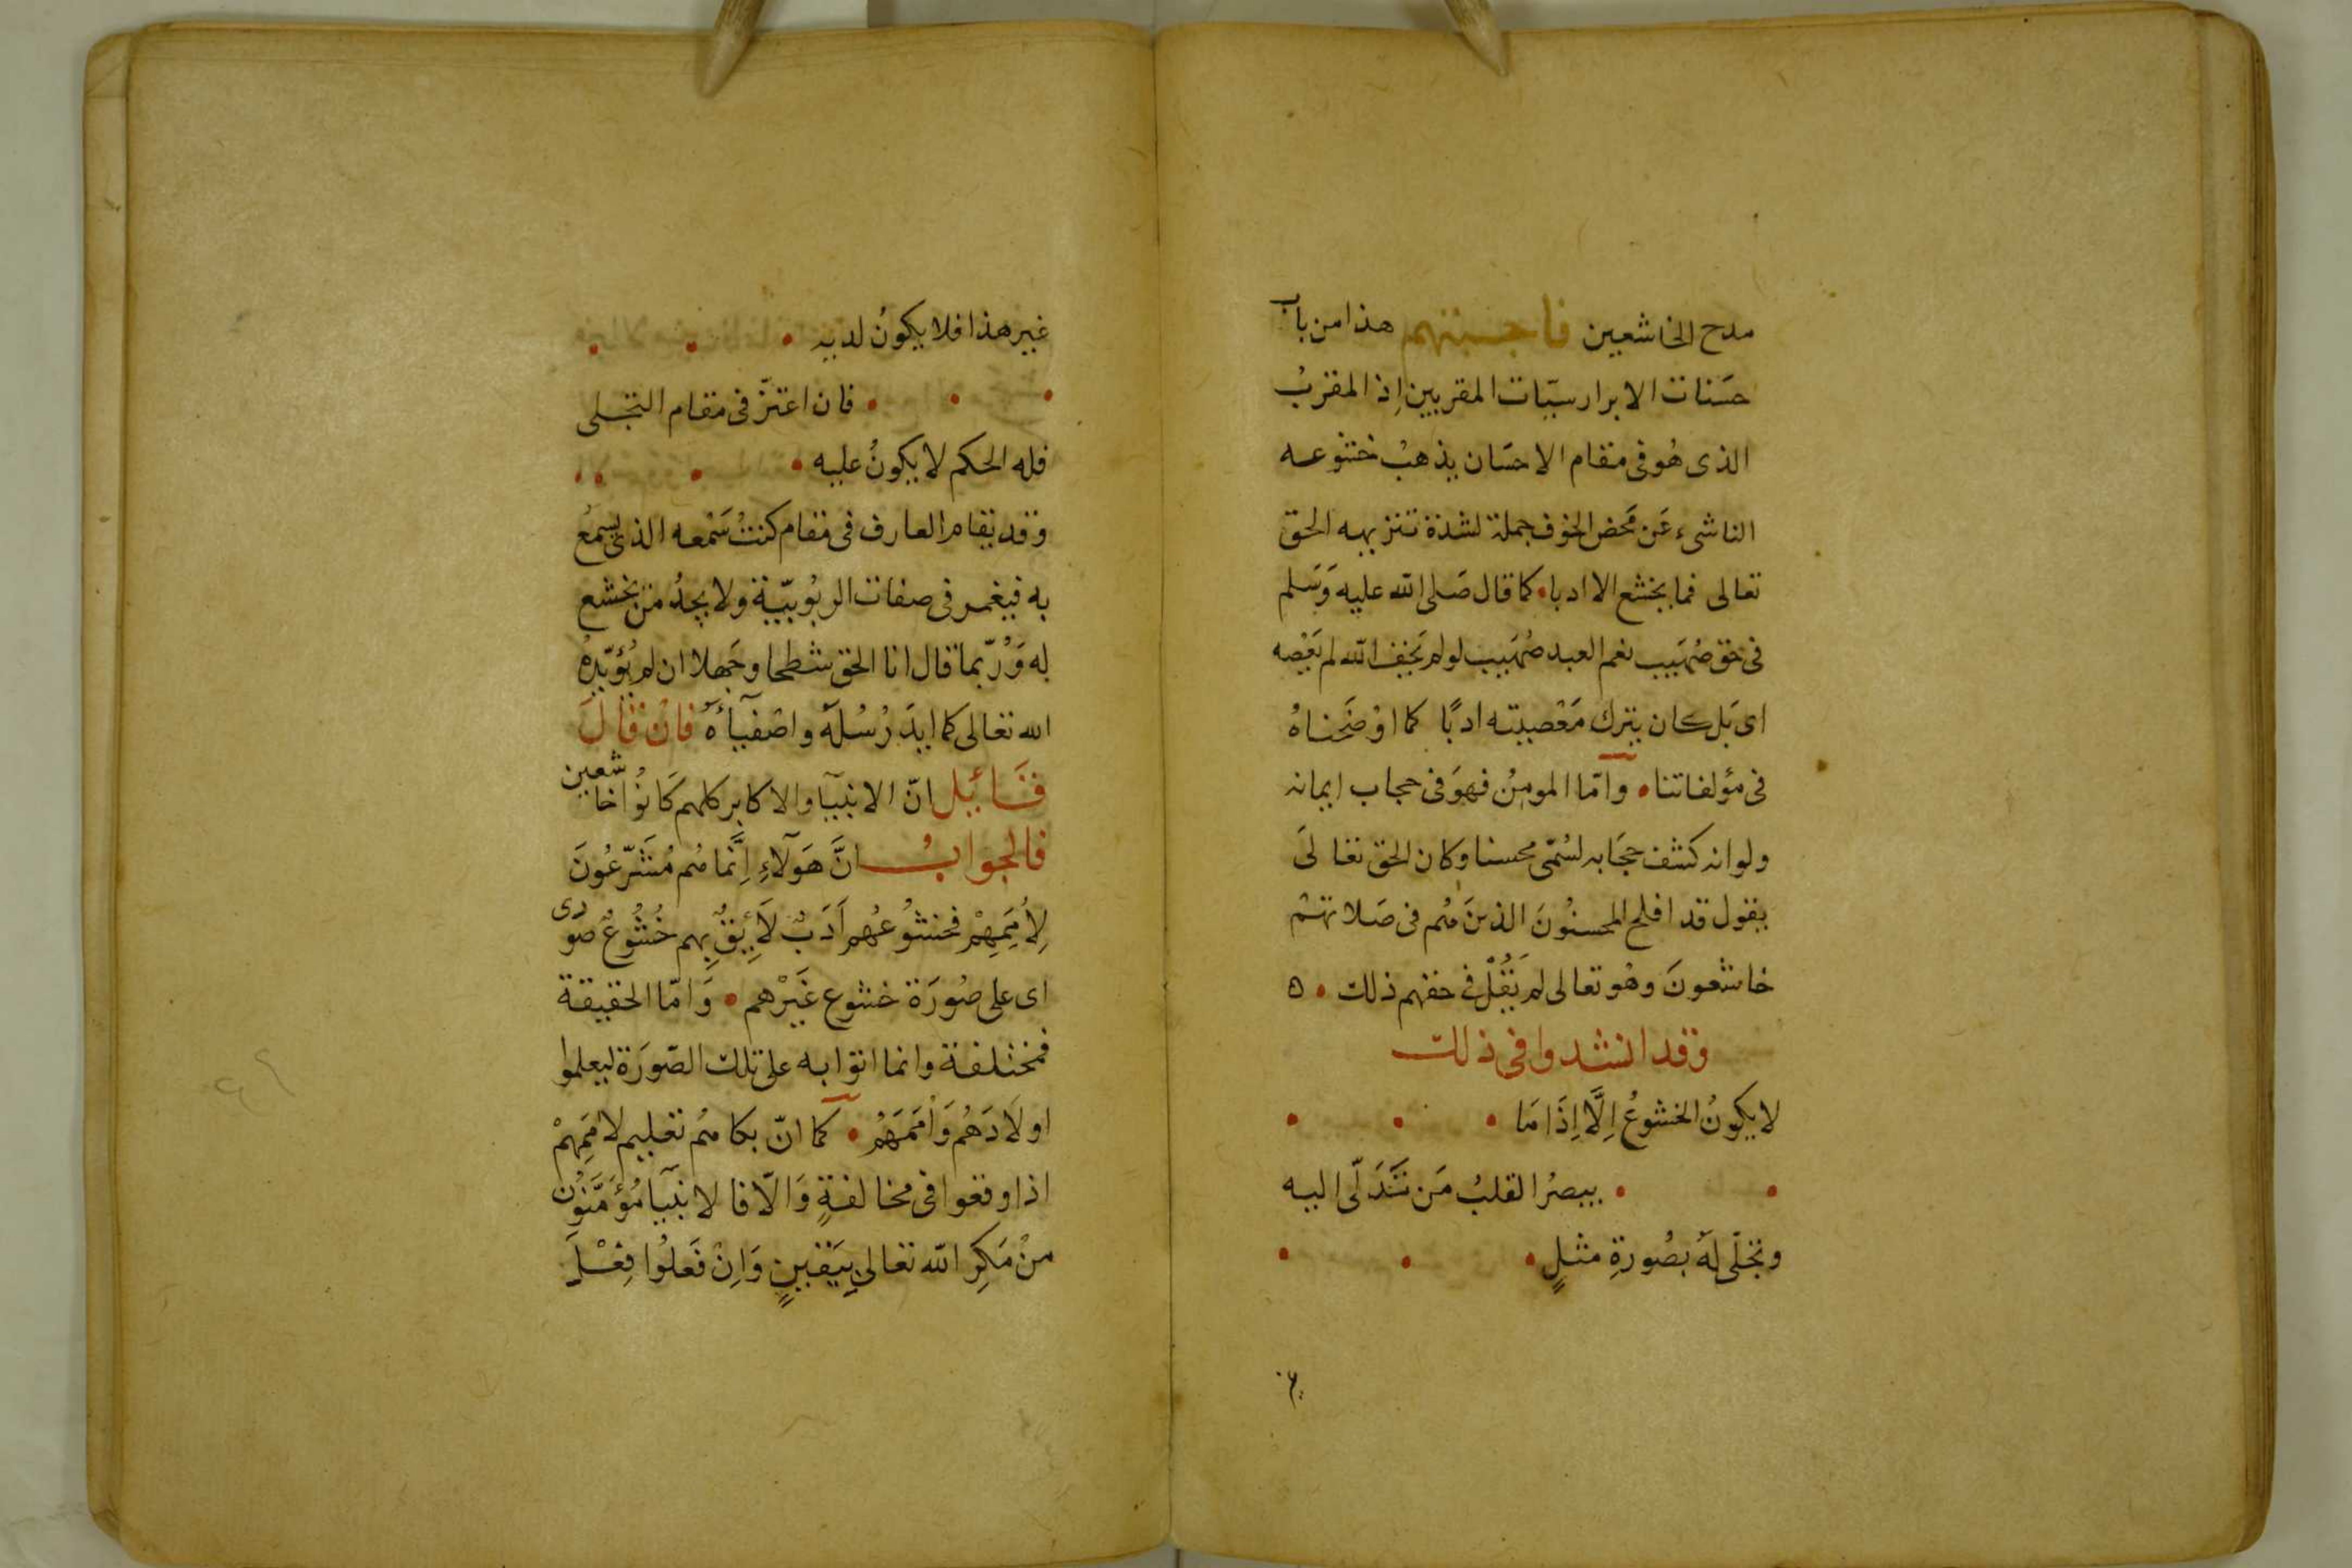 مدح الخاشعين فاجبتهم هذا من باب
حَسَنات الابرار سيّات المقربين اِذ المقربُ
الذى هُو فى مقام الاحسَان يذهبُ خشوعه
الناشىء عَن مَحض الخوف جملة لشدة تنزيهه الحق
تعالى فما يخشع الا ادبا • كما قال صَلى الله عليه وَسَلم
فى حق صُهَيب نعم العبد صُهَيب لو لم يَخف الله لم يَعْصِه
اى بَل كان يترك مَعْصيته ادبًا كما اوْضَحناهُ
فى مؤلفاتنا • وامّا المومِنُ فهوَ فى حجاب ايمانه
ولو انه كشف حجَابه لسُمّى محسنا وكان الحق تعالىَ
يقول قد افلح المحسنُونَ الذينَ هُم فى صَلاتهم
خاشعونَ وهُو تعالى لم يَقُلْ فى حقهم ذلك • ه
وقد انشدوا فى ذلك
لا يكونُ الخشوعُ اِلَّا اِذَا مَا • • •
• • يبصرُ القلبُ مَن تَدَلّى اليه
وتجلّى لهُ بصُورةِ مثلٍ • • •
غير هذا فلا يكونُ لديه • • •
• • • فان اعتزّ فى مقام التجلى
فله الحكم لا يكونُ عليه • • • •
وقد يقام العارف فى مقام كنتُ سَمْعه الذى يسمعُ
به فيغمر فى صفات الربُوبيّة ولا يجدُ من يخشع
له وَرُبّما قال انا الحق شطحا وجَهلا ان لم يُؤيّدهُ
الله تعالى كما ايدَ رُسُلهُ واصْفيآءَهُ فانْ قالَ
قَائِل انّ الانبيآ والاكابر كلهم كَانُوا خاشعين
فالجوابُ انَّ هَولآءِ اِنَّما هُم مُشَرّعُونَ
لِأُمَمِهِمْ فخشُوعُهم اَدَبٌ لَائِقٌ بِهم خُشُوعٌ صُورى
اى على صُورَة خشوع غَيْرهم • وَامّا الحقيقة
فمختلفة وانما اتوا به على تلك الصّورَة ليعلموا
اولَادَهُم وَاُمَمَهُم • كما انّ بكاهُم تعليم لاُمَمِهمْ
اذا وقعوا فى مخالفةٍ وَالّا فالانبيآ مُؤَمَّنُون
منْ مَكرِ الله تعالى بيَقينٍ وَاِنْ فَعلُوا فِعْلَ